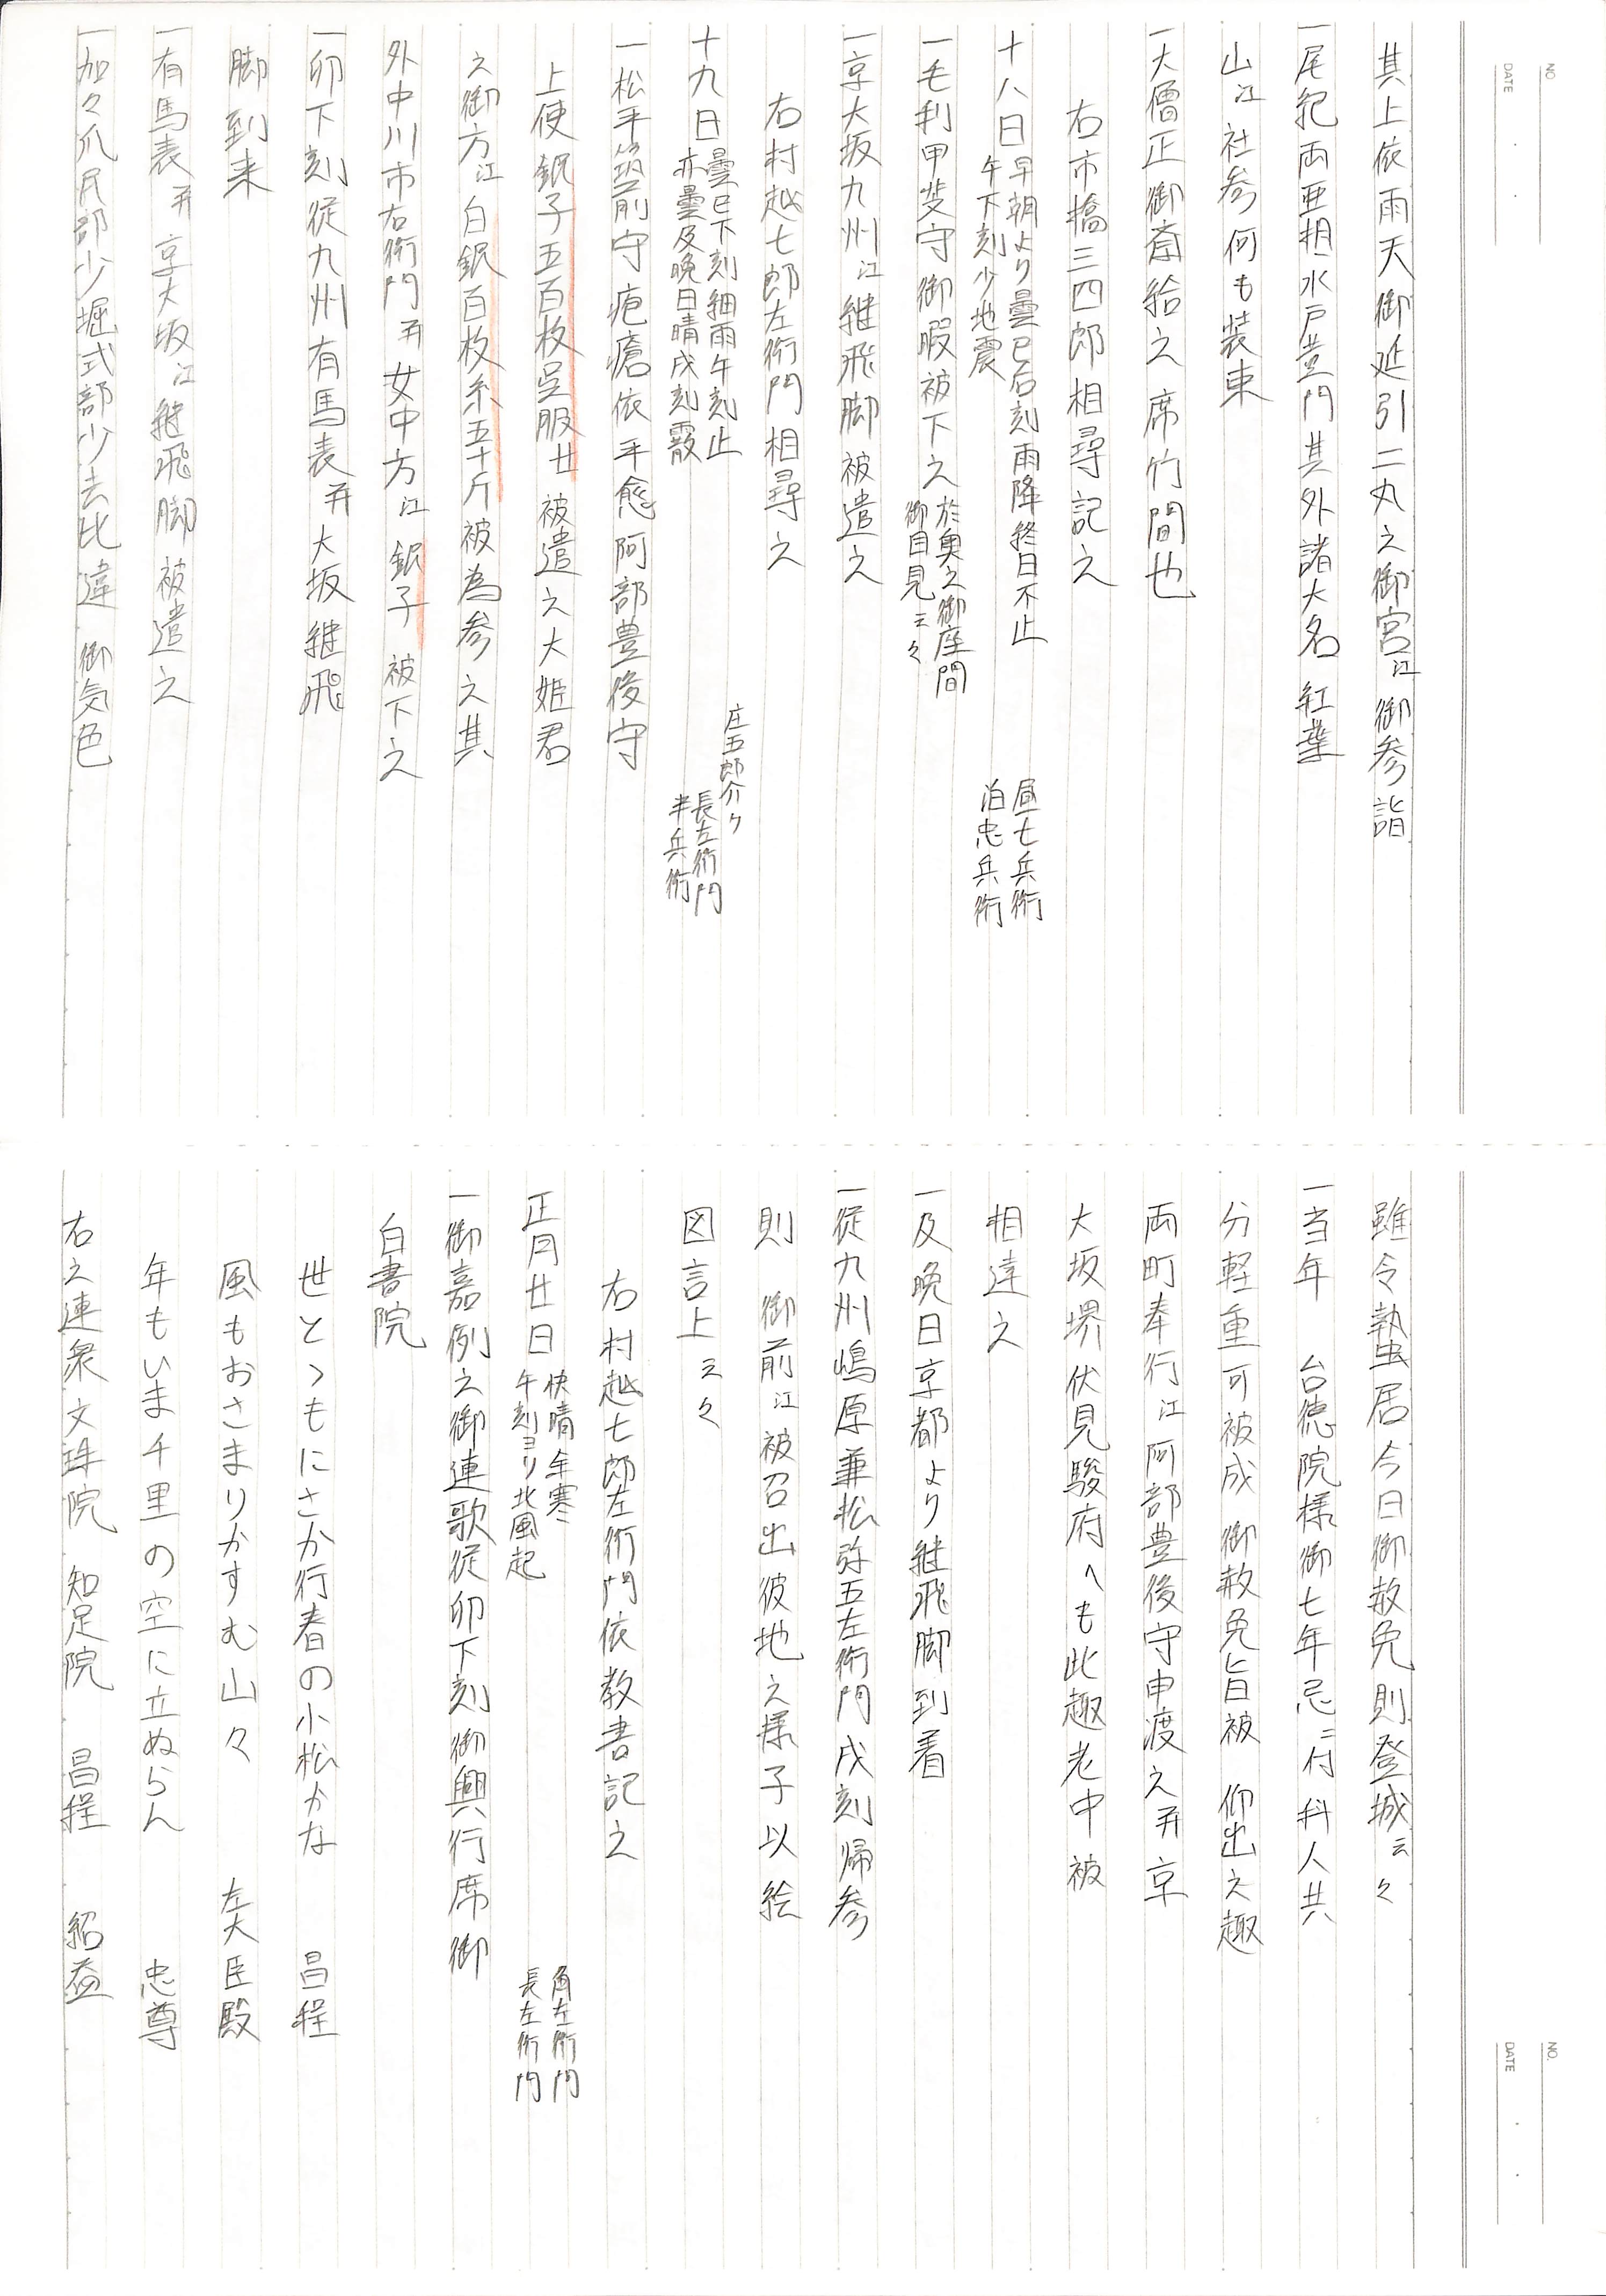 NO
DATE
其上依雨天御延引二丸之御宮江御参詣
一尾紀両亜相水戸黄門其外諸大名紅葉
山江社参何も装束
一大僧正御斎給之席竹間也
右市橋三四郎相尋記之
十八日早朝より曇巳后刻雨降終日不止
午下刻少地震
昼七兵衛
泊忠兵衛
一毛利甲斐守御暇被下之於奥之御座間
御目見云々
一京大坂九州江継飛脚被遣之
右村越七郎左衛門相尋之
十九日曇巳下刻細雨午刻止
亦曇及晩日晴戌刻霰
庄五郎介ク
長左衛門
半兵衛
一松平筑前守疱瘡依平愈阿部豊後守
上使銀子五百枚呉服廿被遣之大姫君
之御方江白銀百枚糸五十斤被為参之其
外中川市右衛門并女中方江銀子被下之
一卯下刻従九州有馬表并大坂継飛
脚到来
一有馬表并京大坂江継飛脚被遣之
一加々爪民部少堀式部少去比違御気色
NO.
DATE
雖令蟄居今日御赦免則登城云々
一当年台徳院様御七年忌ニ付科人共
分軽重可被成御赦免旨被仰出之趣
両町奉行江阿部豊後守申渡之并京
大坂堺伏見駿府へも此趣老中被
相達之
一及晩日京都より継飛脚到着
一従九州嶋原兼松弥五左衛門戌刻帰参
則御前江被召出彼地之様子以絵
図言上云々
右村越七郎左衛門依教書記之
正月廿日快晴余寒
午刻ヨリ北風起
角左衛門
長左衛門
一御嘉例之御連歌従卯下刻御興行席御
白書院
世とゝもにさか行春の小松かな 昌程
風もおさまりかすむ山々 左大臣殿
年もいま千里の空に立ぬらん 忠尊
右之連衆文珠院 知足院 昌程 紹益